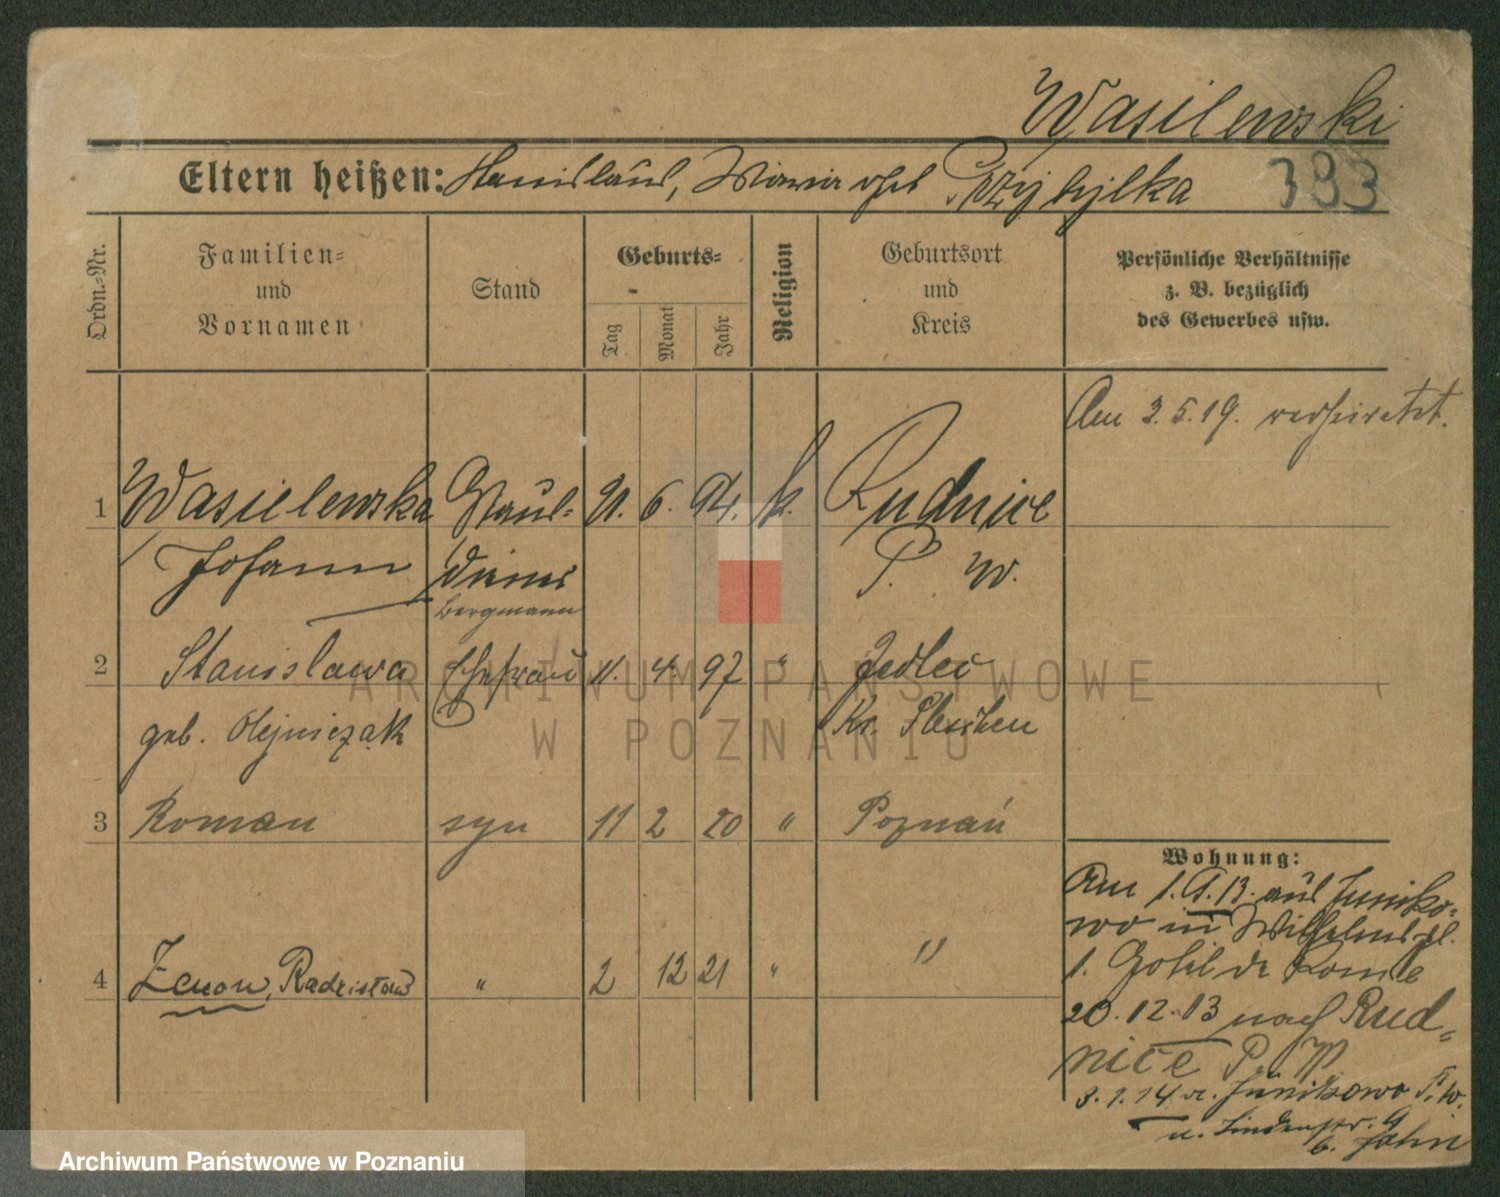 Wasilewski
Eltern heißen: Stanislaus, Maria geb Przybylka
383
Ordn.-Nr.
Familien-
und
Vornamen
Stand
Geburts-
Tag
Monat
Jahr
Religion
Geburtsort
und
Kreis
Persönliche Verhältnisse
z. B. bezüglich
des Gewerbes usw.
Am 3.5.19. verheiratet.
1 Wasielewska 21. 6. 94. k. Rudnice
Johann P. W.
Bergmann
2 Stanislawa Ehefrau 11. 4. 97 " Jedlec
geb. Olejniczak Kr. Pleschen
3 Roman syn 11 2 20 " Poznań
Wohnung:
Am 1.9.13. aus Juniko-
wo in Wilhelmspl.
4 Zenon, Radzisław " 2 12 21 " "
1. Hotel de Rome
20.12.13 nach Rud-
nice P. W.
3.1.14 v. Junikowo P. W.
n. Lindenstr. 9
b. Jahn
ARCHIWUM PAŃSTWOWE
W POZNANIU
Archiwum Państwowe w Poznaniu